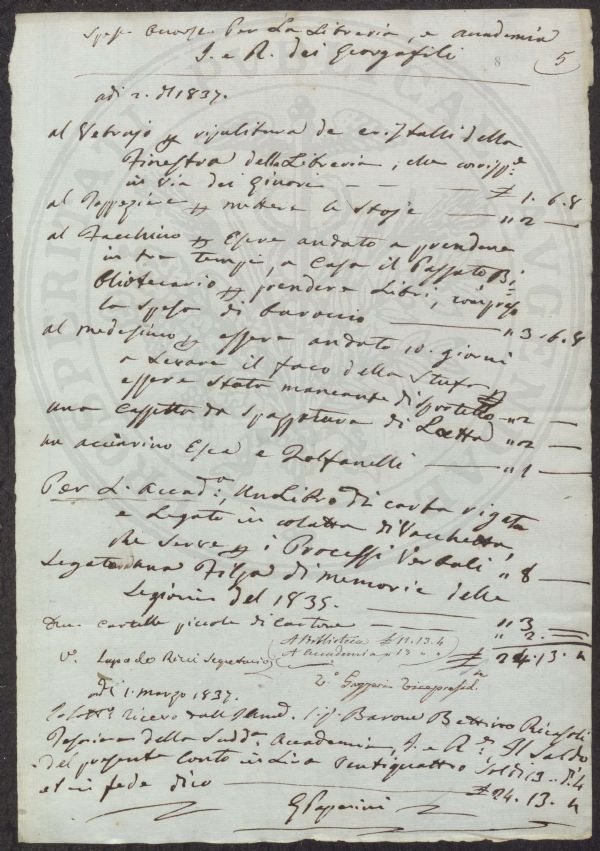 Spese Occorse Per La Libreria, e Accademia
I. e R. dei Georgofili
8
5
adi 2. del 1837.
al Vetrajo p ripulitura de cristalli della
Finestra della Libreria, che corrisp.e
in Via dei Ginori £ 1. 6. 8
al Tappeziere p mettere le Stoje " 2 —
al Facchino p Esere andato a prendere
in tre tempi, a Casa il Passato Bi
bliotecario p prendere Libri, compreso
la spesa di baroccio " 3. 6. 8
al medesimo p essere andato 10. giorni
a Levare il foco della Stufa p
essere stata mancante di sportello " 2 —
una Cassetta da Spazzatura di Latta " 2 —
un acciarino Esca e Zolfanelli " 1 —
Per L'Accad.a, Un Libro di carta rigata
e Legato in colatta di Vacchetta,
che serve p i Processi Verbali " 8 —
Legato una Filza di memorie delle
Legioni del 1835. " 3 —
Due cartelle piccole di cartone " 2. —
A Biblioteca £ 11. 13. 4
A Accademia " 13 " "
£ 24. 13. 4
V.o Lapo de Ricci Segretario
V.o Gazzeri Vicepresid.e
adi 1. marzo 1837.
Io sott.o Ricevo dall' Sig. Barone Bettino Ricasoli
Tesoriere della Sudd.a Accademia, I. e R., Il Saldo
del presente Conto in Lire Ventiquattro Soldi 13. d. 4
et in fede dico £ 24. 13. 4
G Paperini